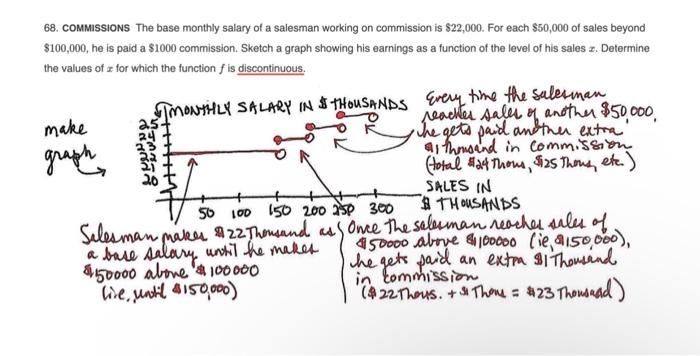 68. COMMISSIONS The base monthly salary of a salesman working on commission is $22,000. For each $50,000 of sales beyond
$100,000, he is paid a $1000 commission. Sketch a graph showing his earnings as a function of the level of his sales x. Determine
the values of x for which the function f is discontinuous.
MONTHLY SALARY IN $ THOUSANDS
make
graph
25
24
23
22
21
20
50 100 150 200 250 300
SALES IN
$ THOUSANDS
Every time the salesman
reaches sales of another $50,000,
he gets paid another extra
$1 thousand in commission
(total $24 Thous, $25 Thous, etc.)
Salesman makes $22 Thousand as
a base salary until he makes
$50000 above $100000
(i.e, until $150,000)
Once the salesman reaches sales of
$50000 above $100000 (ie, $150,000),
he gets paid an extra $1 Thousand
in commission
($22 Thous. + $1 Thou = $23 Thousand)